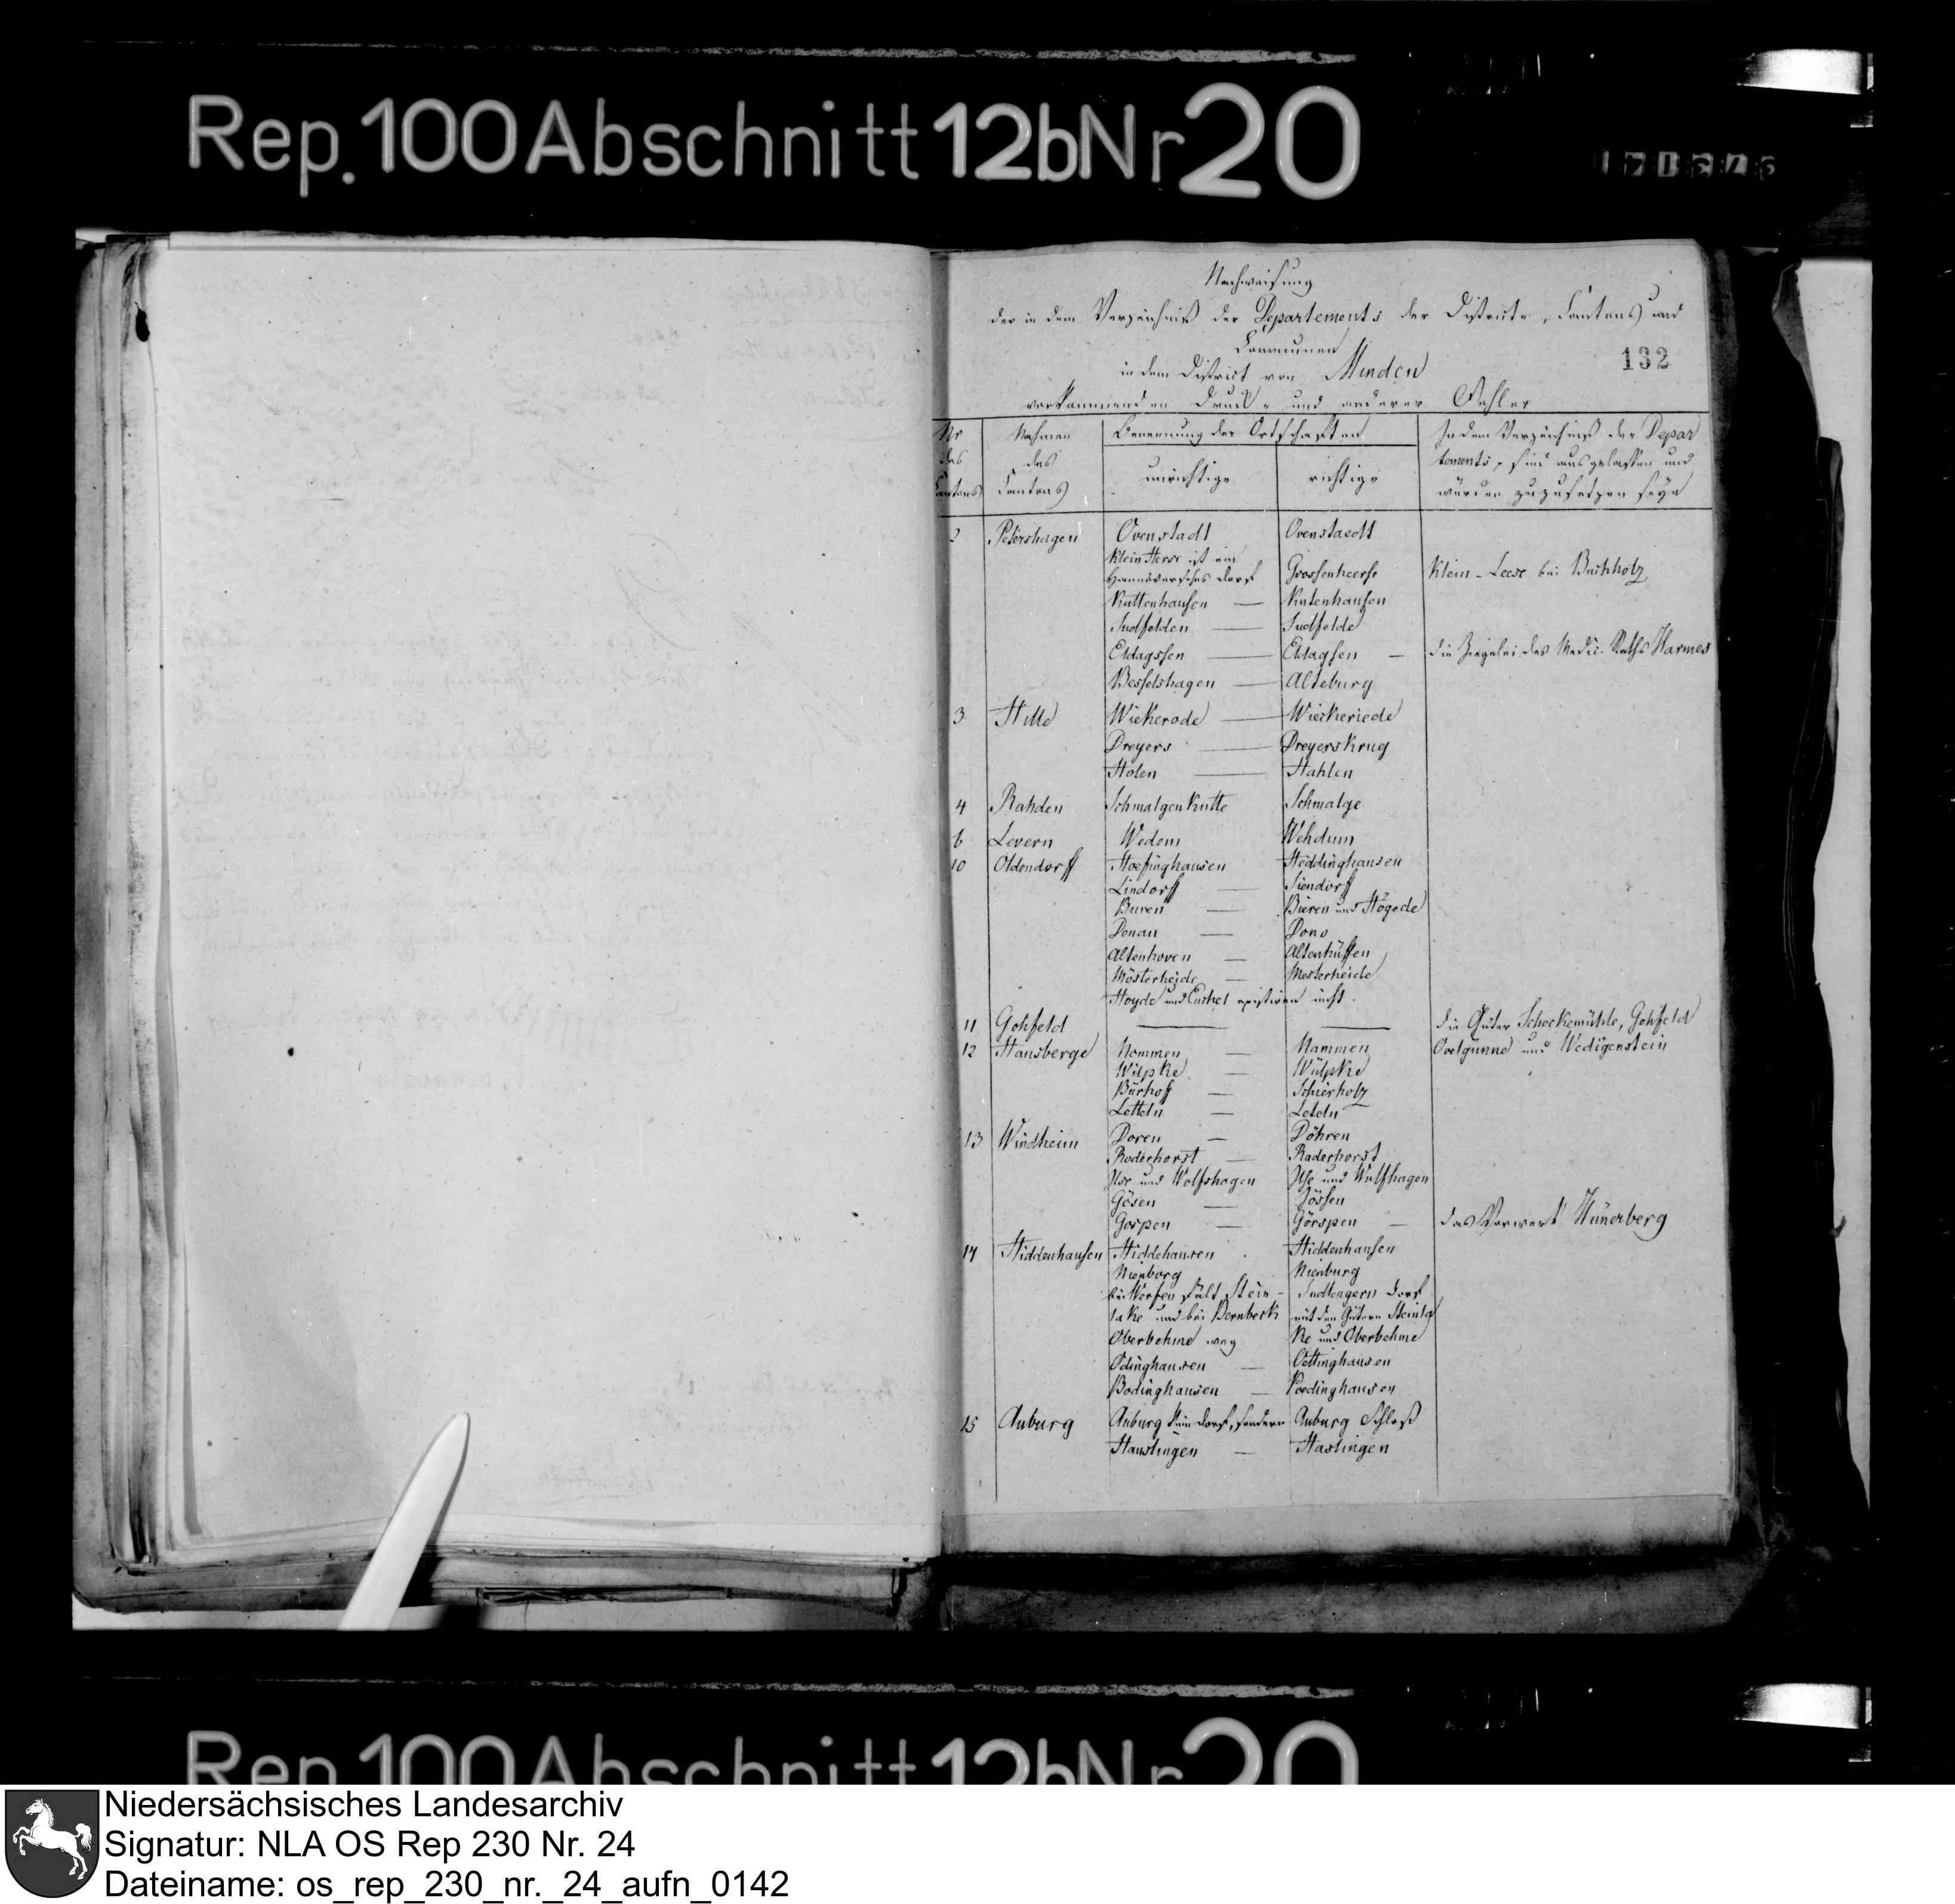 Rep. 100 Abschnitt 12b Nr 20
Nachweisung
der in dem Verzeichniß der Departements der Districte, Cantons und
Communen
132
in dem District von Minden
vorkommenden Druck- und anderer Fehler
Nr des Cantons
Nahmen des Cantons
Benennung der Ortschaften
unrichtige
richtige
In dem Verzeichniß der Depar
tements, sind ausgelassen und
würden zuzusetzen seyn
2 Petershagen Ovenstadt Ovenstaedt
Klein Herse ist ein
Hannoversches Dorf Grossenheerse Klein-Leese bei Buchholz
Kuttenhausen — Kutenhausen
Sudfelden — Sudfelde
Eldagssen — Eldagsen — die Ziegelei des Medic. Raths Harmes
Besselshagen — Alteburg
3 Hille Wiekerode — Wiekeriede
Dreyers — Dreyerskrug
Holen — Hahlen
4 Rahden Schmalgenkutte Schmalge
6 Levern Wedem Wehdum
10 Oldendorff Hoefinghausen Heddinghausen
Lindorff — Siendorff
Buren — Bieren und Högede
Donau — Dono
Altenhoven — Altenhüffen
Mösterheide — Mesterheide
Hoyde und existiren nicht.
11 Gohfeld — — die Güter Schockemühle, Gohfeld
12 Hausberge Nommen — Nammen Ovelgünne und Wedigenstein
Wilpke — Wülpke
Bürhoff — Schierholz
Letteln — Leteln
13 Windheim Doren — Döhren
Roderhorst — Raderhorst
Ilse und Wolfshagen Ilse und Wulfhagen
Gösen — Jössen
Gorpen — Görspen — das Vorwerk Hünerberg
14 Hiddenhausen Hiddehausen Hiddenhausen
Nienborg Nienburg
bei Werfen fält Stein- Sudlengern Dorf
lake und bei Bernbeck mit den Gütern Steinla
Oberbehme weg ke und Oberbehme
Odinghausen — Oettinghausen
Bodinghausen — Poedinghausen
15 Auburg Auburg kein Dorf, sondern Auburg Schloß
Hauslingen — Haslingen
Rep. 100 Abschnitt 12b Nr 20
Niedersächsisches Landesarchiv
Signatur: NLA OS Rep 230 Nr. 24
Dateiname: os_rep_230_nr._24_aufn_0142